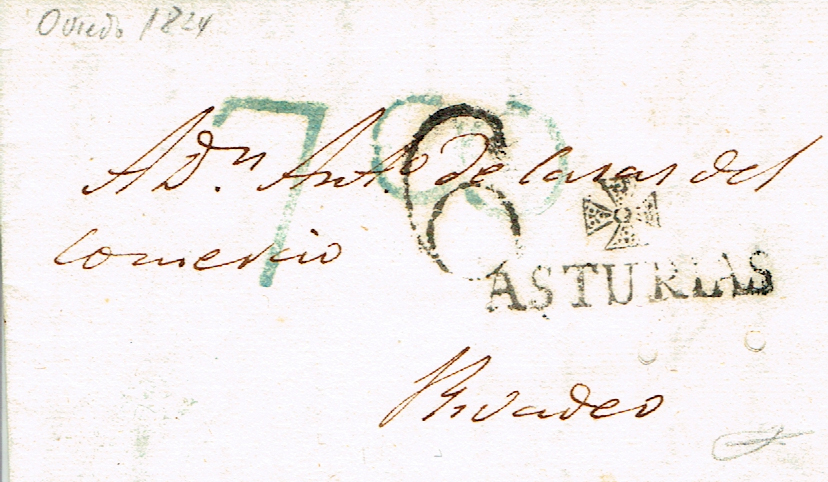 Oviedo 1824
7 8 6
A Dn. Anto. de Casas del
comercio
ASTURIAS
Rivadeo